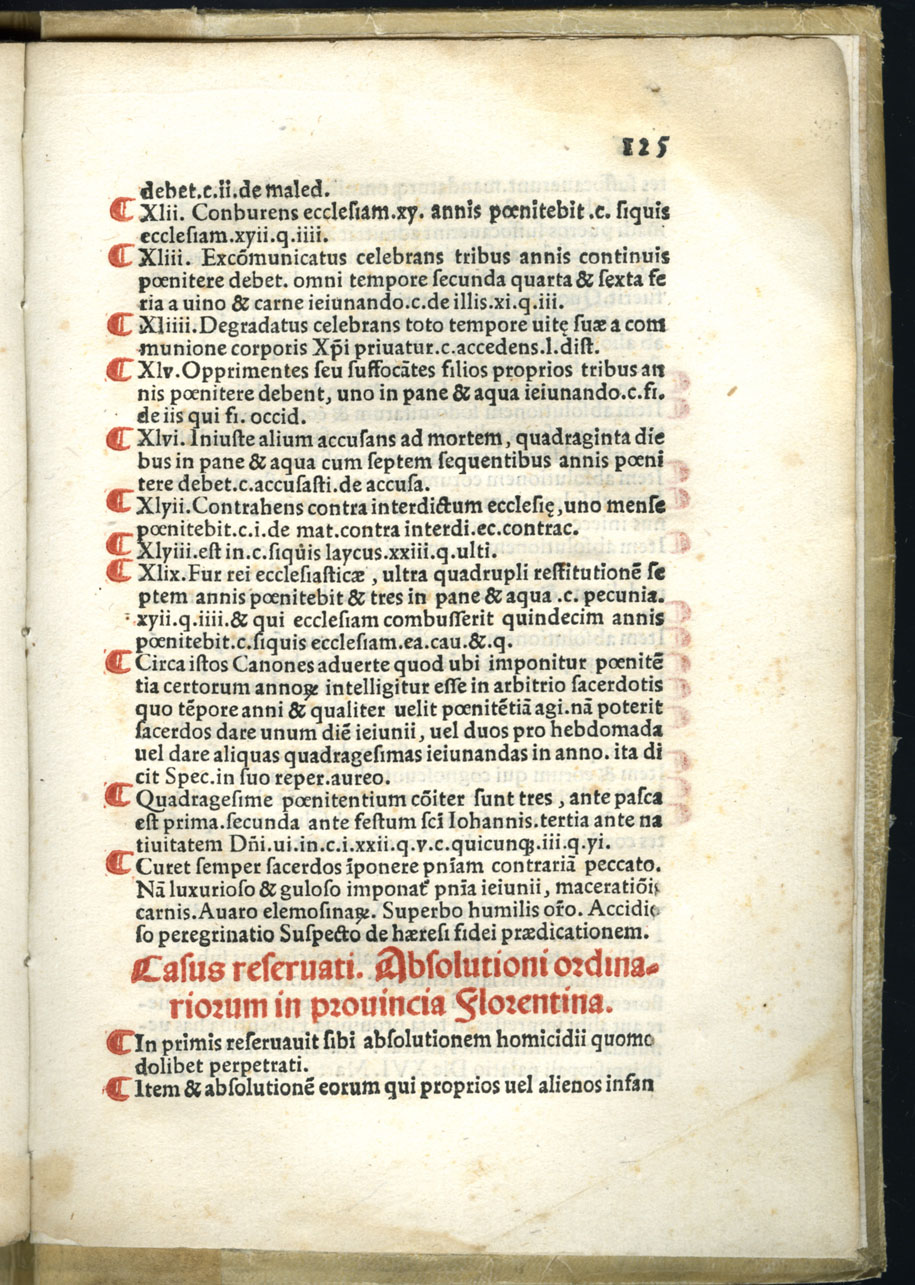 125
debet.c.ii.de maled.
¶ Xlii. Conburens ecclesiam.xy. annis pœnitebit .c. siquis
ecclesiam.xyii.q.iiii.
¶ Xliii. Excõmunicatus celebrans tribus annis continuis
pœnitere debet. omni tempore secunda quarta & sexta fe
ria a uino & carne ieiunando.c.de illis.xi.q.iii.
¶ Xliiii.Degradatus celebrans toto tempore uitę suæ a com
munione corporis Xp̃i priuatur.c.accedens.l.dist.
¶ Xlv.Opprimentes seu suffocãtes filios proprios tribus an
nis pœnitere debent, uno in pane & aqua ieiunando.c.fi.
de iis qui fi. occid.
¶ Xlvi. Iniuste alium accusans ad mortem, quadraginta die
bus in pane & aqua cum septem sequentibus annis pœni
tere debet.c.accusasti.de accusa.
¶ Xlyii.Contrahens contra interdictum ecclesię,uno mense
pœnitebit.c.i.de mat.contra interdi.ec.contrac.
¶ Xlyiii.est in.c.siquis laycus.xxiii.q.ulti.
¶ Xlix.Fur rei ecclesiasticæ, ultra quadrupli restitutionẽ se
ptem annis pœnitebit & tres in pane & aqua .c. pecunia.
xyii.q.iiii.& qui ecclesiam combusserit quindecim annis
pœnitebit.c.siquis ecclesiam.ea.cau.&.q.
¶ Circa istos Canones aduerte quod ubi imponitur pœnitẽ
tia certorum annoꝝ intelligitur esse in arbitrio sacerdotis
quo tẽpore anni & qualiter uelit pœnitẽtiã agi.nã poterit
sacerdos dare unum diẽ ieiunii, uel duos pro hebdomada
uel dare aliquas quadragesimas ieiunandas in anno. ita di
cit Spec.in suo reper.aureo.
¶ Quadragesime pœnitentium cõiter sunt tres, ante pasca
est prima.secunda ante festum sc̃i Iohannis.tertia ante na
tiuitatem Dñi.ui.in.c.i.xxii.q.v.c.quicunqꝫ.iii.q.yi.
¶ Curet semper sacerdos ĩponere pñiam contrariã peccato.
Nã luxurioso & guloso imponat᷑ pñia ieiunii, maceratiõis
carnis.Auaro elemosinaꝝ. Superbo humilis or̃o. Accidio
so peregrinatio Suspecto de hæresi fidei prædicationem.
Casus reseruati. Absolutioni ordina-
riorum in prouincia Florentina.
¶ In primis reseruauit sibi absolutionem homicidii quomo
dolibet perpetrati.
¶ Item & absolutionẽ eorum qui proprios uel alienos infan